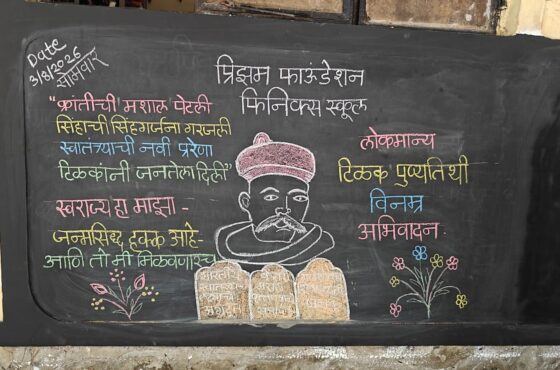 Date
3/8/2026
सोमवार
प्रिझम फाऊंडेशन
फिनिक्स स्कूल
"क्रांतीची मशाल पेटली
सिंहाची सिंहगर्जना गरजली
स्वातंत्र्याची नवी प्रेरणा
टिळकांनी जनतेला दिली"
स्वराज्य हा माझा -
जन्मसिद्ध हक्क आहे-
आणि तो मी मिळवणारच
लोकमान्य
टिळक पुण्यतिथी
विनम्र
अभिवादन